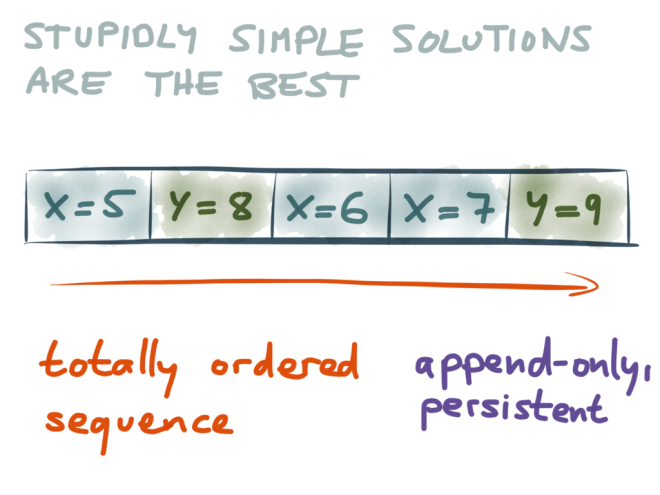 STUPIDLY SIMPLE SOLUTIONS
ARE THE BEST
X=5 Y=8 X=6 X=7 Y=9
totally ordered
sequence
append-only,
persistent